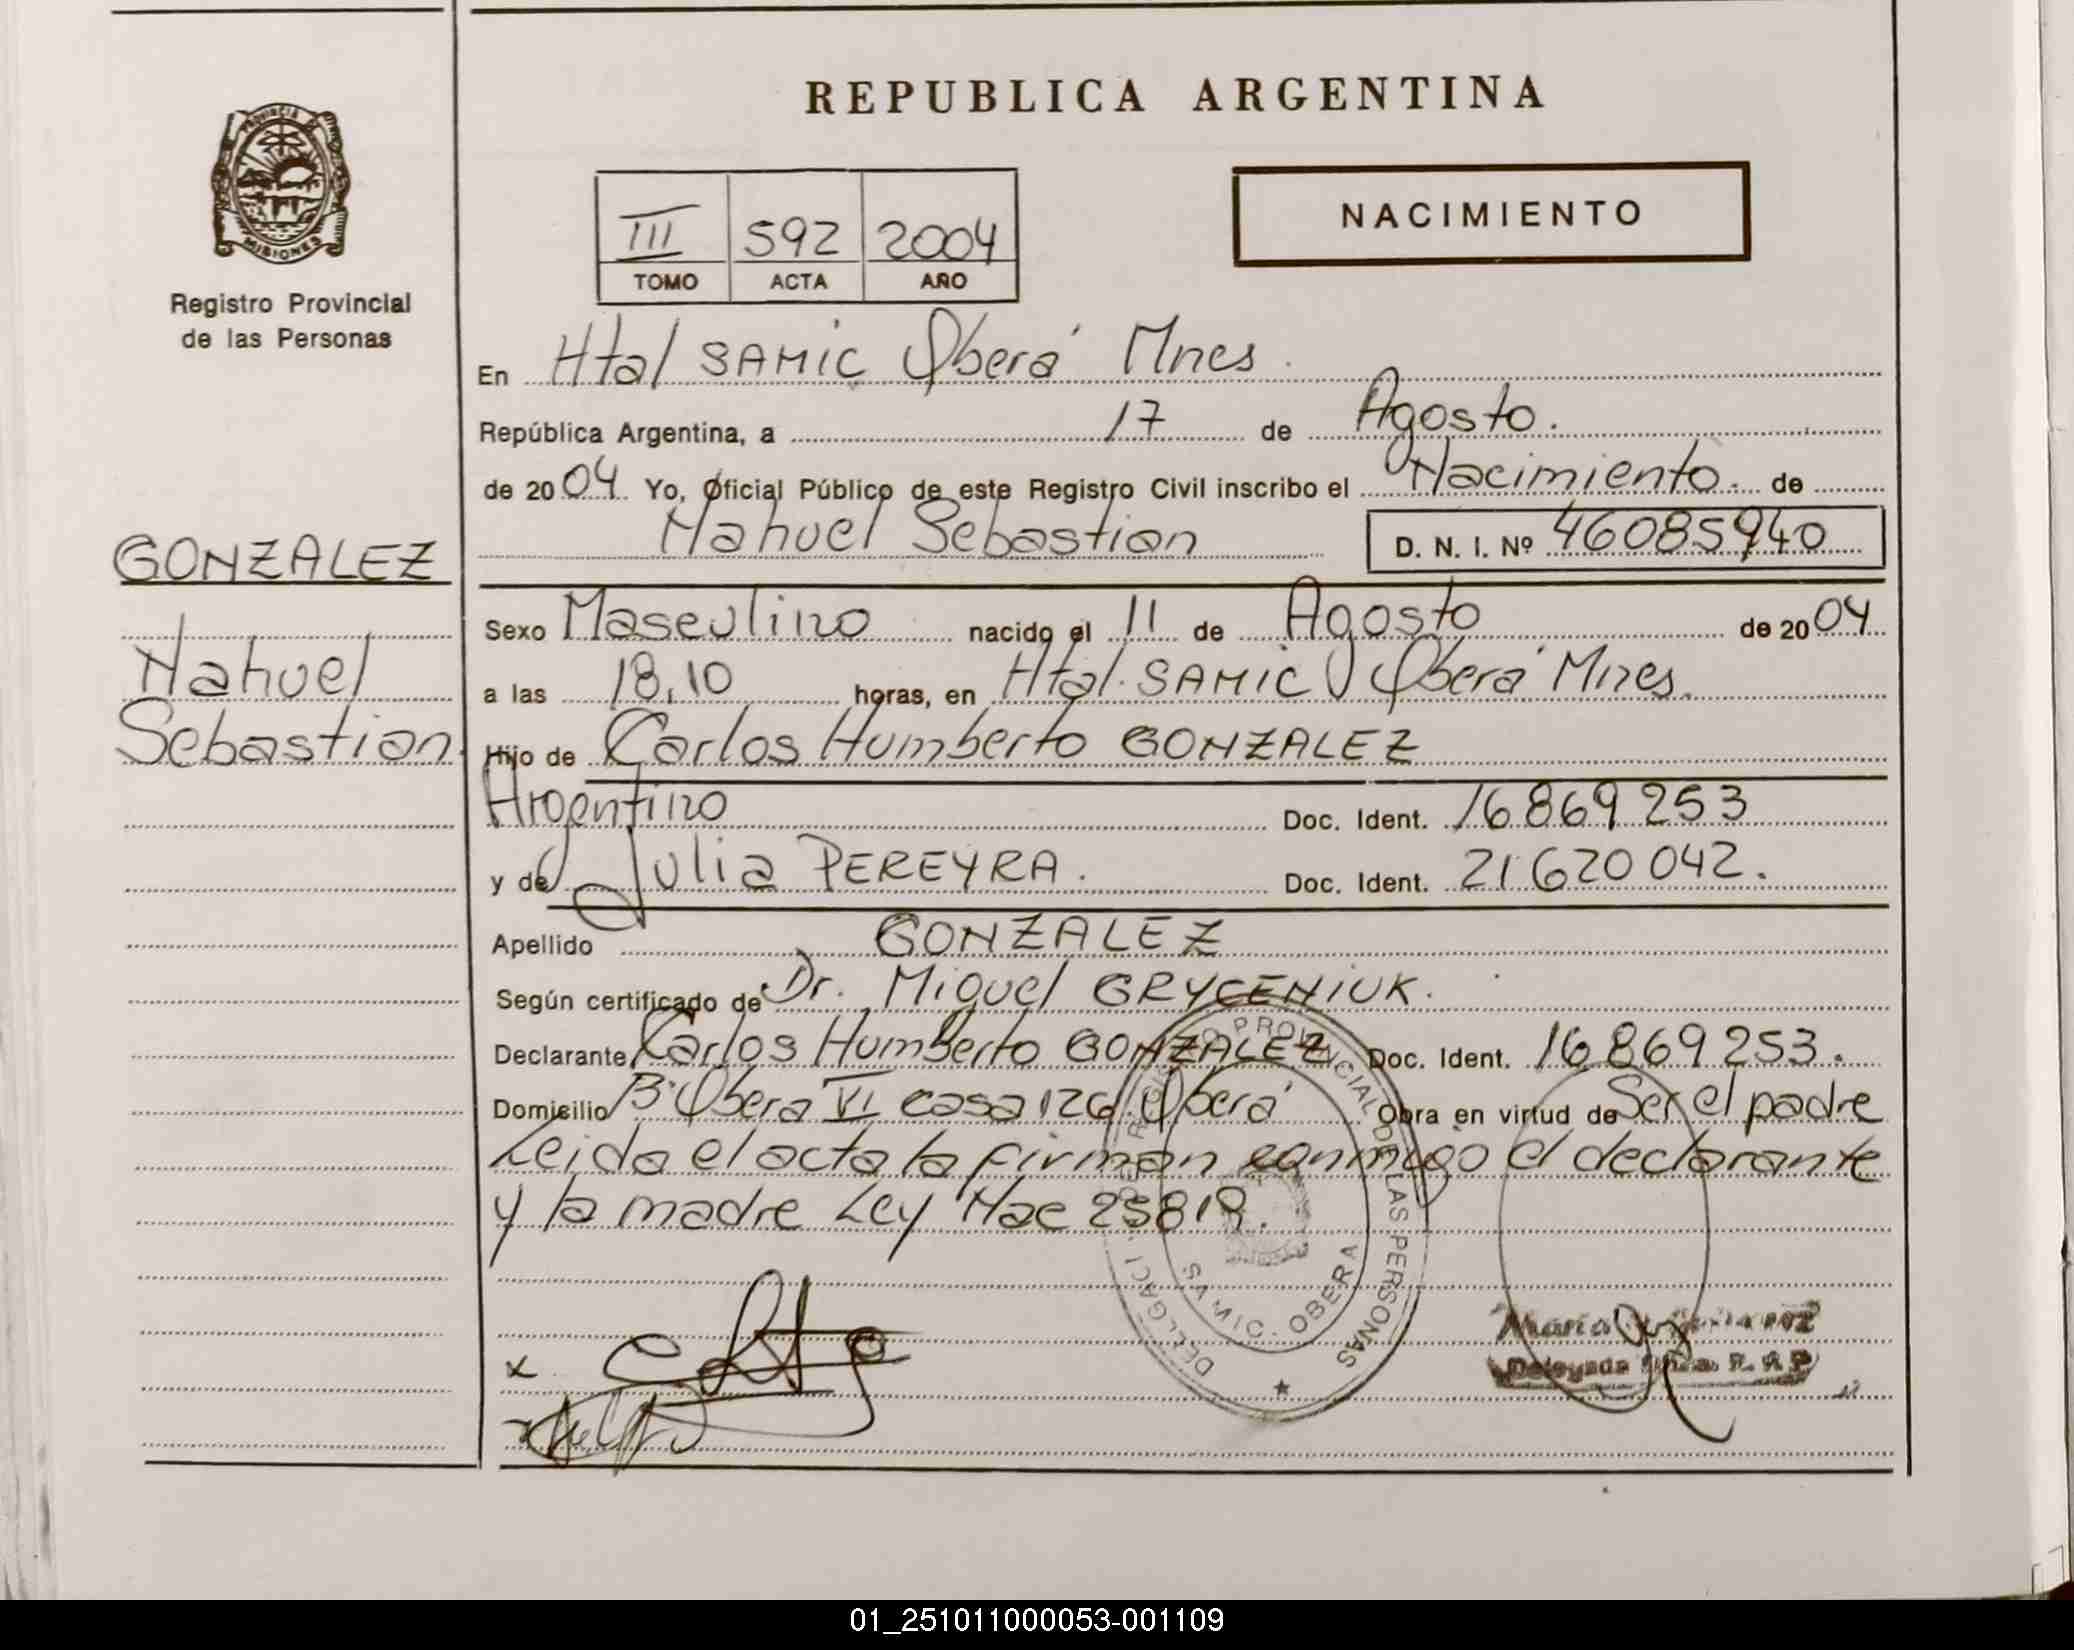 REPUBLICA ARGENTINA
PROVINCIA DE
MISIONES
Registro Provincial
de las Personas
III 592 2004
TOMO ACTA AÑO
NACIMIENTO
En Htal SAMIC Oberá Mnes.
República Argentina, a 17 de Agosto.
de 2004 Yo, Oficial Público de este Registro Civil inscribo el Nacimiento. de
Nahuel Sebastian D. N. I. Nº 46085940
GONZALEZ
Nahuel
Sebastian.
Sexo Masculino nacido el 11 de Agosto de 2004
a las 18,10 horas, en Htal. SAMIC Oberá Mnes.
Hijo de Carlos Humberto GONZALEZ
Argentino Doc. Ident. 16869253
y de Julia PEREYRA. Doc. Ident. 21620042.
Apellido GONZALEZ
Según certificado de Dr. Miguel GRYCENIUK.
Declarante Carlos Humberto GONZALEZ Doc. Ident. 16869253.
Domicilio Bº Oberá VI casa 126. Oberá Obra en virtud de Ser el padre
Leida el acta la firman conmigo el declarante
y la madre Ley Nac 25819.
REGISTRO PROVINCIAL DE LAS PERSONAS
SAMIC - OBERA
x
María
Delegada
01_251011000053-001109